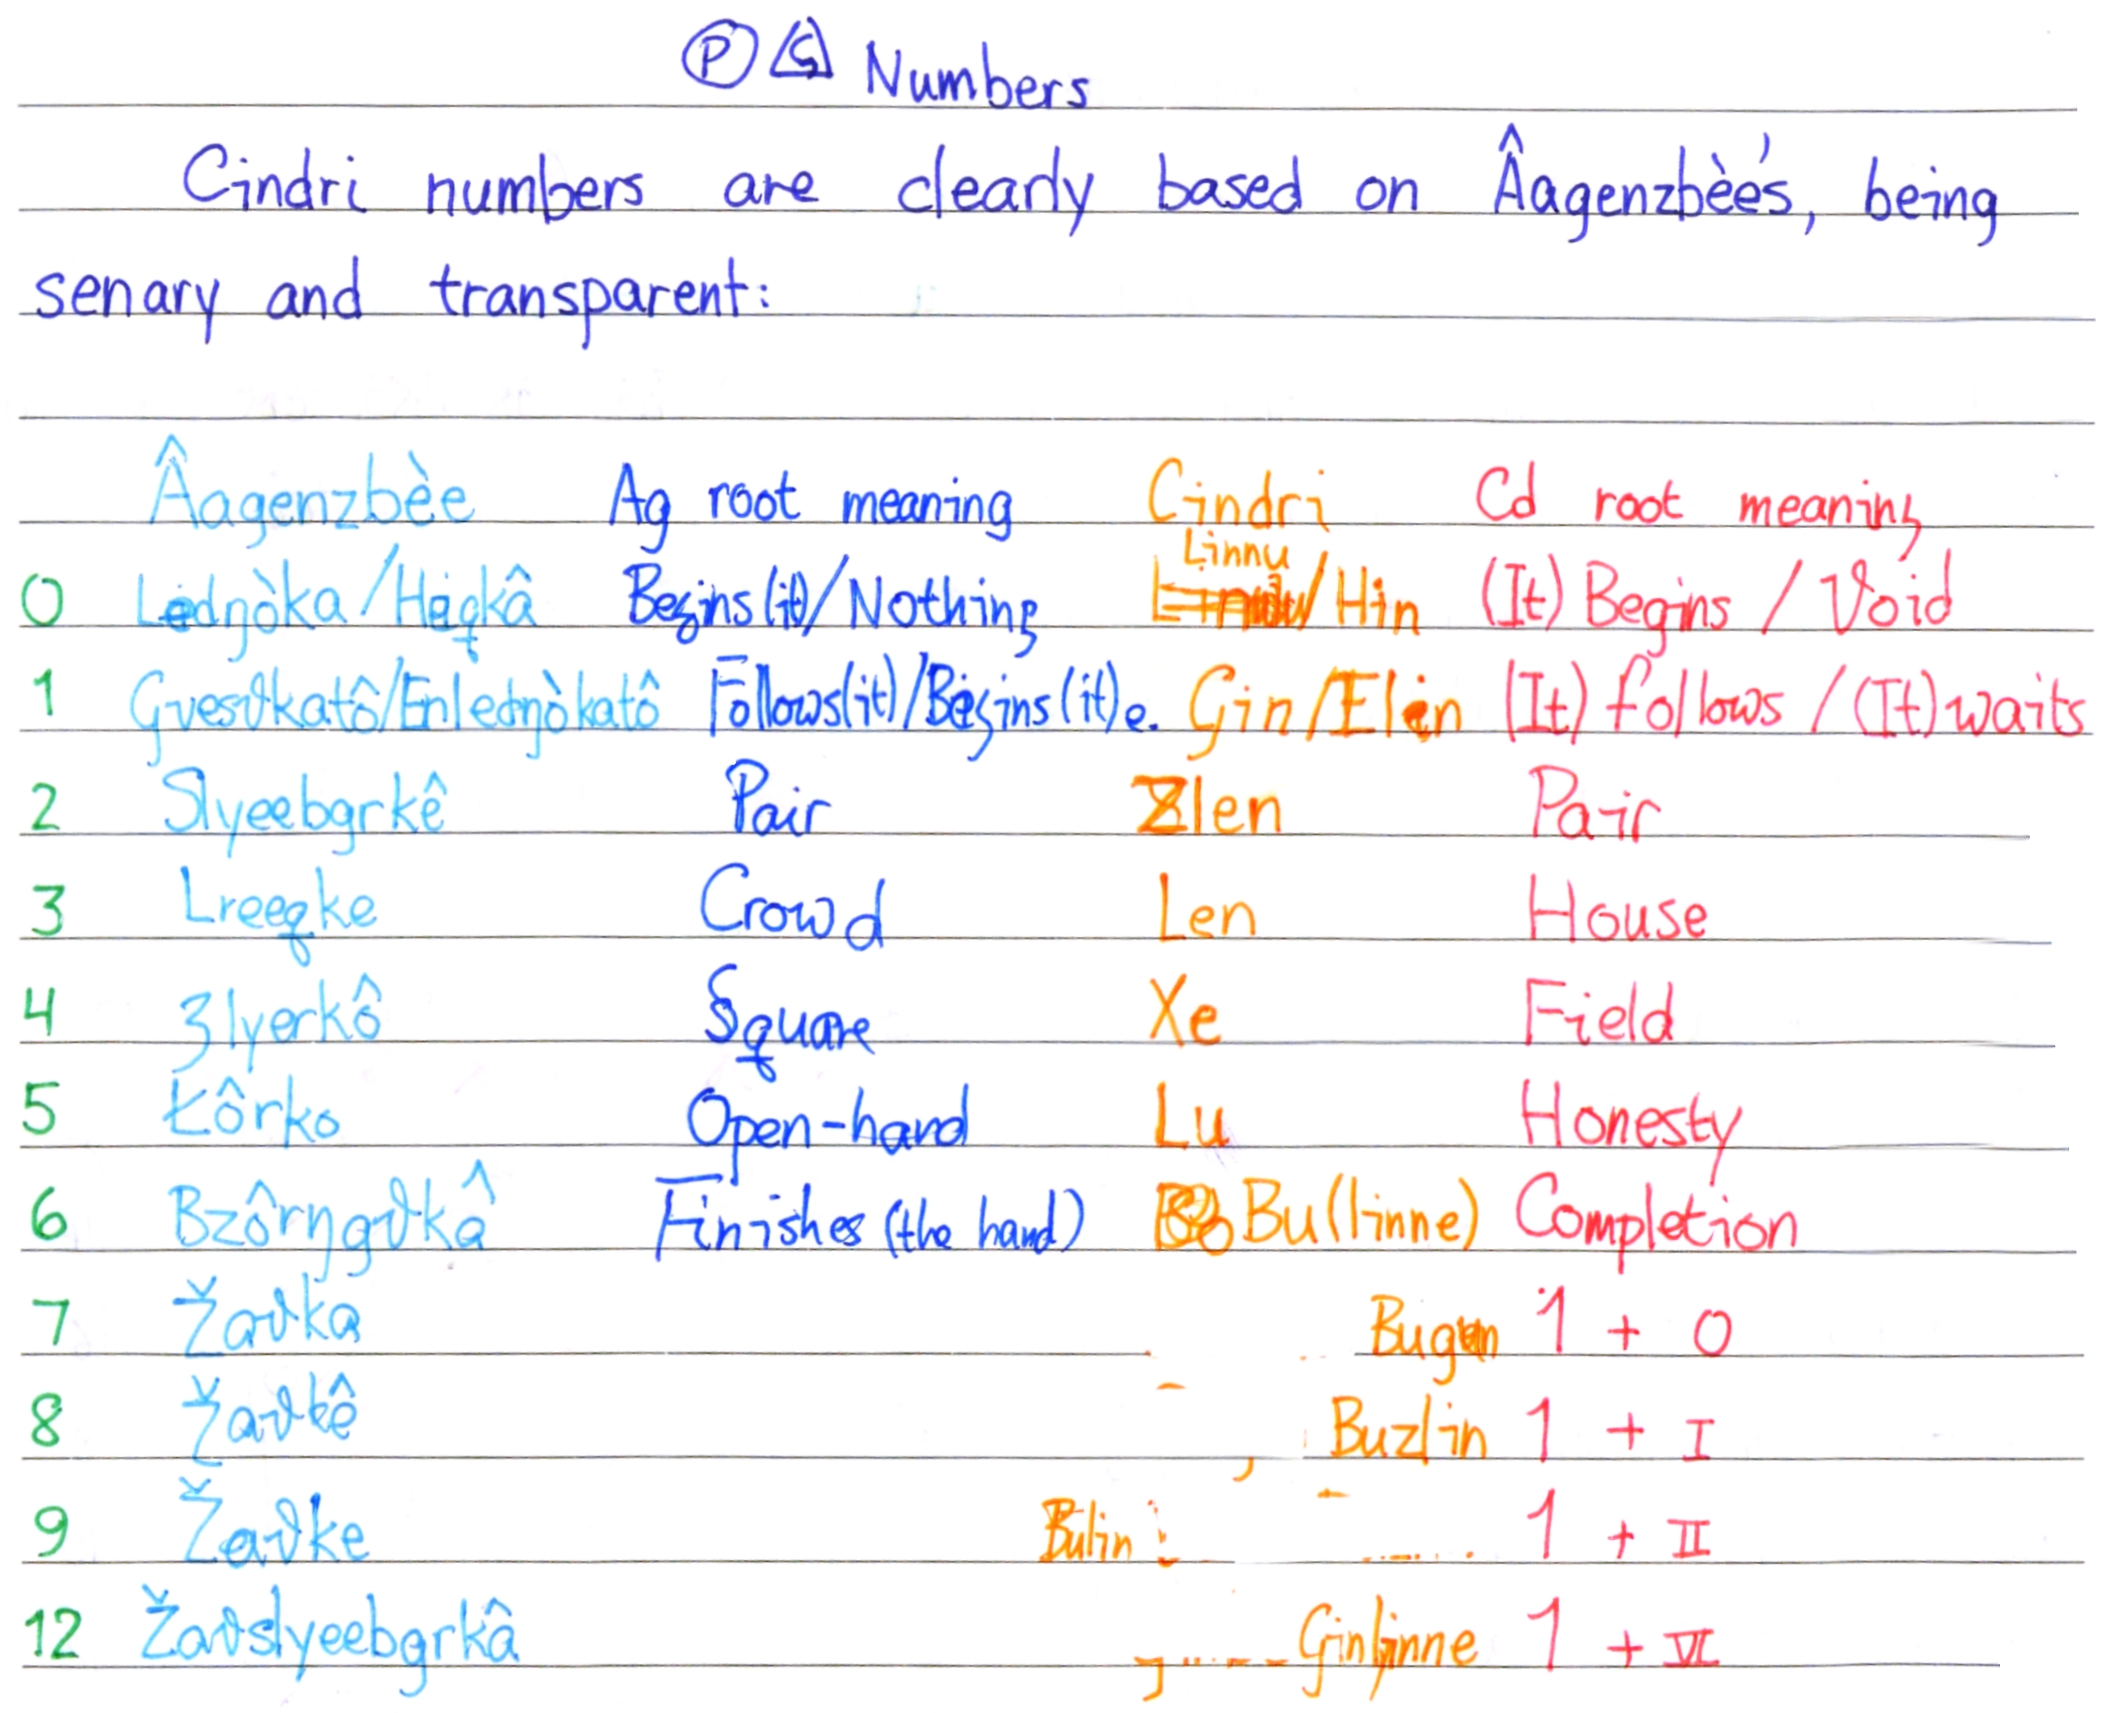 P C Numbers
Cindri numbers are clearly based on Âagenzbèe's, being
senary and transparent:
Âagenzbèe Ag root meaning Cindri Cd root meaning
0 Ledŋòka/Heqkâ Begins(it)/Nothing Linnu/Hin (It) Begins / Void
1 Gvesϑkatô/Enledŋòkatô Follows(it)/Begins(it)e. Gin/Elen (It) follows / (It) waits
2 Slyeebgrkê Pair Zlen Pair
3 Lreeqke Crowd Len House
4 Ʒlyerkô Square Xe Field
5 Łôrko Open-hand Lu Honesty
6 Bzôrŋgϑkâ Finishes (the hand) Bu(linne) Completion
7 Žaϑka Bugun 1 + 0
8 Žaϑkê Buzlin 1 + I
9 Žaϑke Bulin 1 + II
12 Žaϑslyeebgrkâ Ginlinne 1 + VI